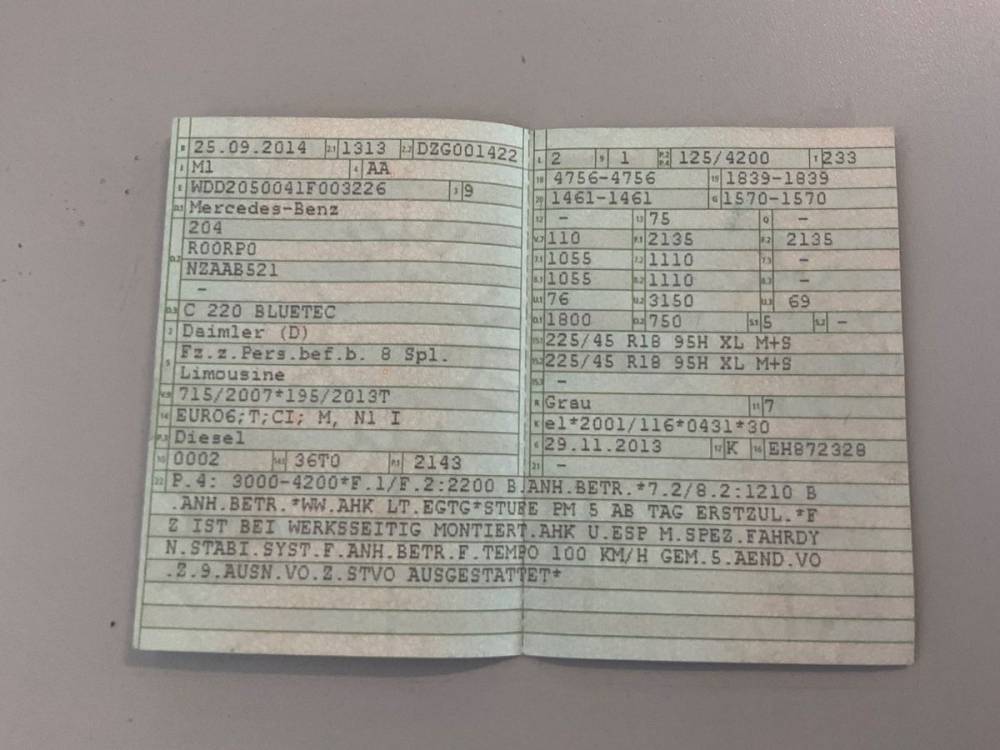 B 25.09.2014 2.1 1313 2.2 DZG001422
J M1 4 AA
E WDD2050041F003226 3 9
D.1 Mercedes-Benz
204
D.2 R00RP0
NZAAB521
-
D.3 C 220 BLUETEC
2 Daimler (D)
5 Fz.z.Pers.bef.b. 8 Spl.
Limousine
V.9 715/2007*195/2013T
14 EURO6;T;CI; M, N1 I
P.3 Diesel
10 0002 14.1 36T0 P.1 2143
L 2 9 1 P.2 P.4 125/4200 T 233
18 4756-4756 19 1839-1839
20 1461-1461 G 1570-1570
12 - 13 75 Q -
V.7 110 F.1 2135 F.2 2135
7.1 1055 7.2 1110 7.3 -
8.1 1055 8.2 1110 8.3 -
U.1 76 U.2 3150 U.3 69
O.1 1800 O.2 750 S.1 5 S.2 -
15.1 225/45 R18 95H XL M+S
15.2 225/45 R18 95H XL M+S
15.3 -
R Grau 11 7
K e1*2001/116*0431*30
6 29.11.2013 17 K 16 EH872328
21 -
22 P.4: 3000-4200*F.1/F.2:2200 B.ANH.BETR.*7.2/8.2:1210 B
.ANH.BETR.*WW.AHK LT.EGTG*STUFE PM 5 AB TAG ERSTZUL.*F
Z IST BEI WERKSSEITIG MONTIERT.AHK U.ESP M.SPEZ.FAHRDY
N.STABI.SYST.F.ANH.BETR.F.TEMPO 100 KM/H GEM.5.AEND.VO
.Z.9.AUSN.VO.Z.STVO AUSGESTATTET*